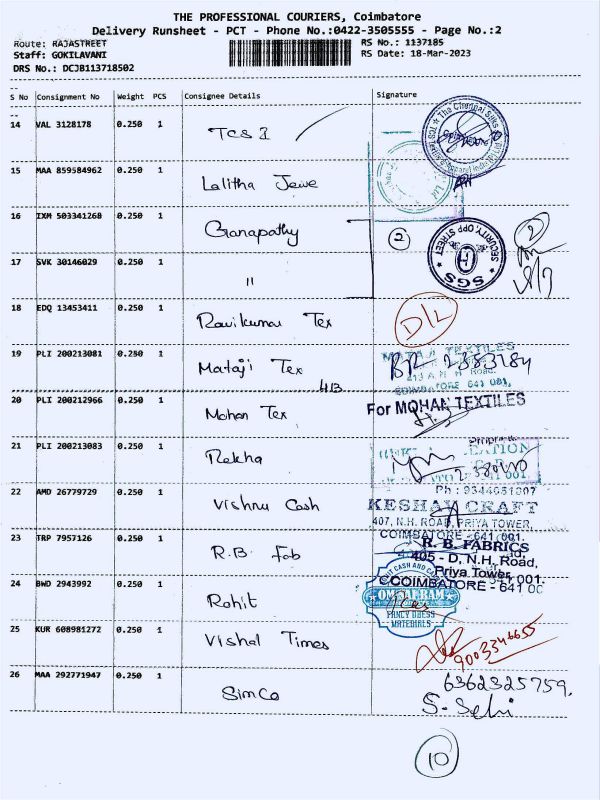 THE PROFESSIONAL COURIERS, Coimbatore
Delivery Runsheet - PCT - Phone No.:0422-3505555 - Page No.:2
Route: RAJASTREET
RS No.: 1137185
Staff: GOKILAVANI
RS Date: 18-Mar-2023
DRS No.: DCJB113718502
S No Consignment No Weight PCS Consignee Details Signature
14 VAL 3128178 0.250 1 TCS I
The Chennai Silks
15 MAA 859584962 0.250 1 Lalitha Jewe
16 IXM 503341268 0.250 1 Ganapathy 2
SECURITY, OPP STREET
SGS
2
17 SVK 30146029 0.250 1 "
18 EDQ 13453411 0.250 1 Ravikumar Tex D/L
19 PLI 200213081 0.250 1 Mataji Tex
MATAJI TEXTILES
Road,
COIMBATORE 641 001.
413
20 PLI 200212966 0.250 1 Mohan Tex For MOHAN TEXTILES
21 PLI 200213083 0.250 1 Rekha
22 AMD 26779729 0.250 1 Vishnu Cash
Ph : 9344651907
KESHAV CRAFT
407, N.H. ROAD, PRIYA TOWER,
COIMBATORE - 641 001.
23 TRP 7957126 0.250 1 R.B. fab
R. B. FABRICS
405 - D, N.H. Road,
Priya Tower,
COIMBATORE - 641 001.
24 BWD 2943992 0.250 1 Rohit
OMSAI RAM
FANCY DRESS
MATERIALS
25 KUR 608981272 0.250 1 Vishal Times 9003346655
26 MAA 292771947 0.250 1 Simco 6362325759.
S. Selvi
10